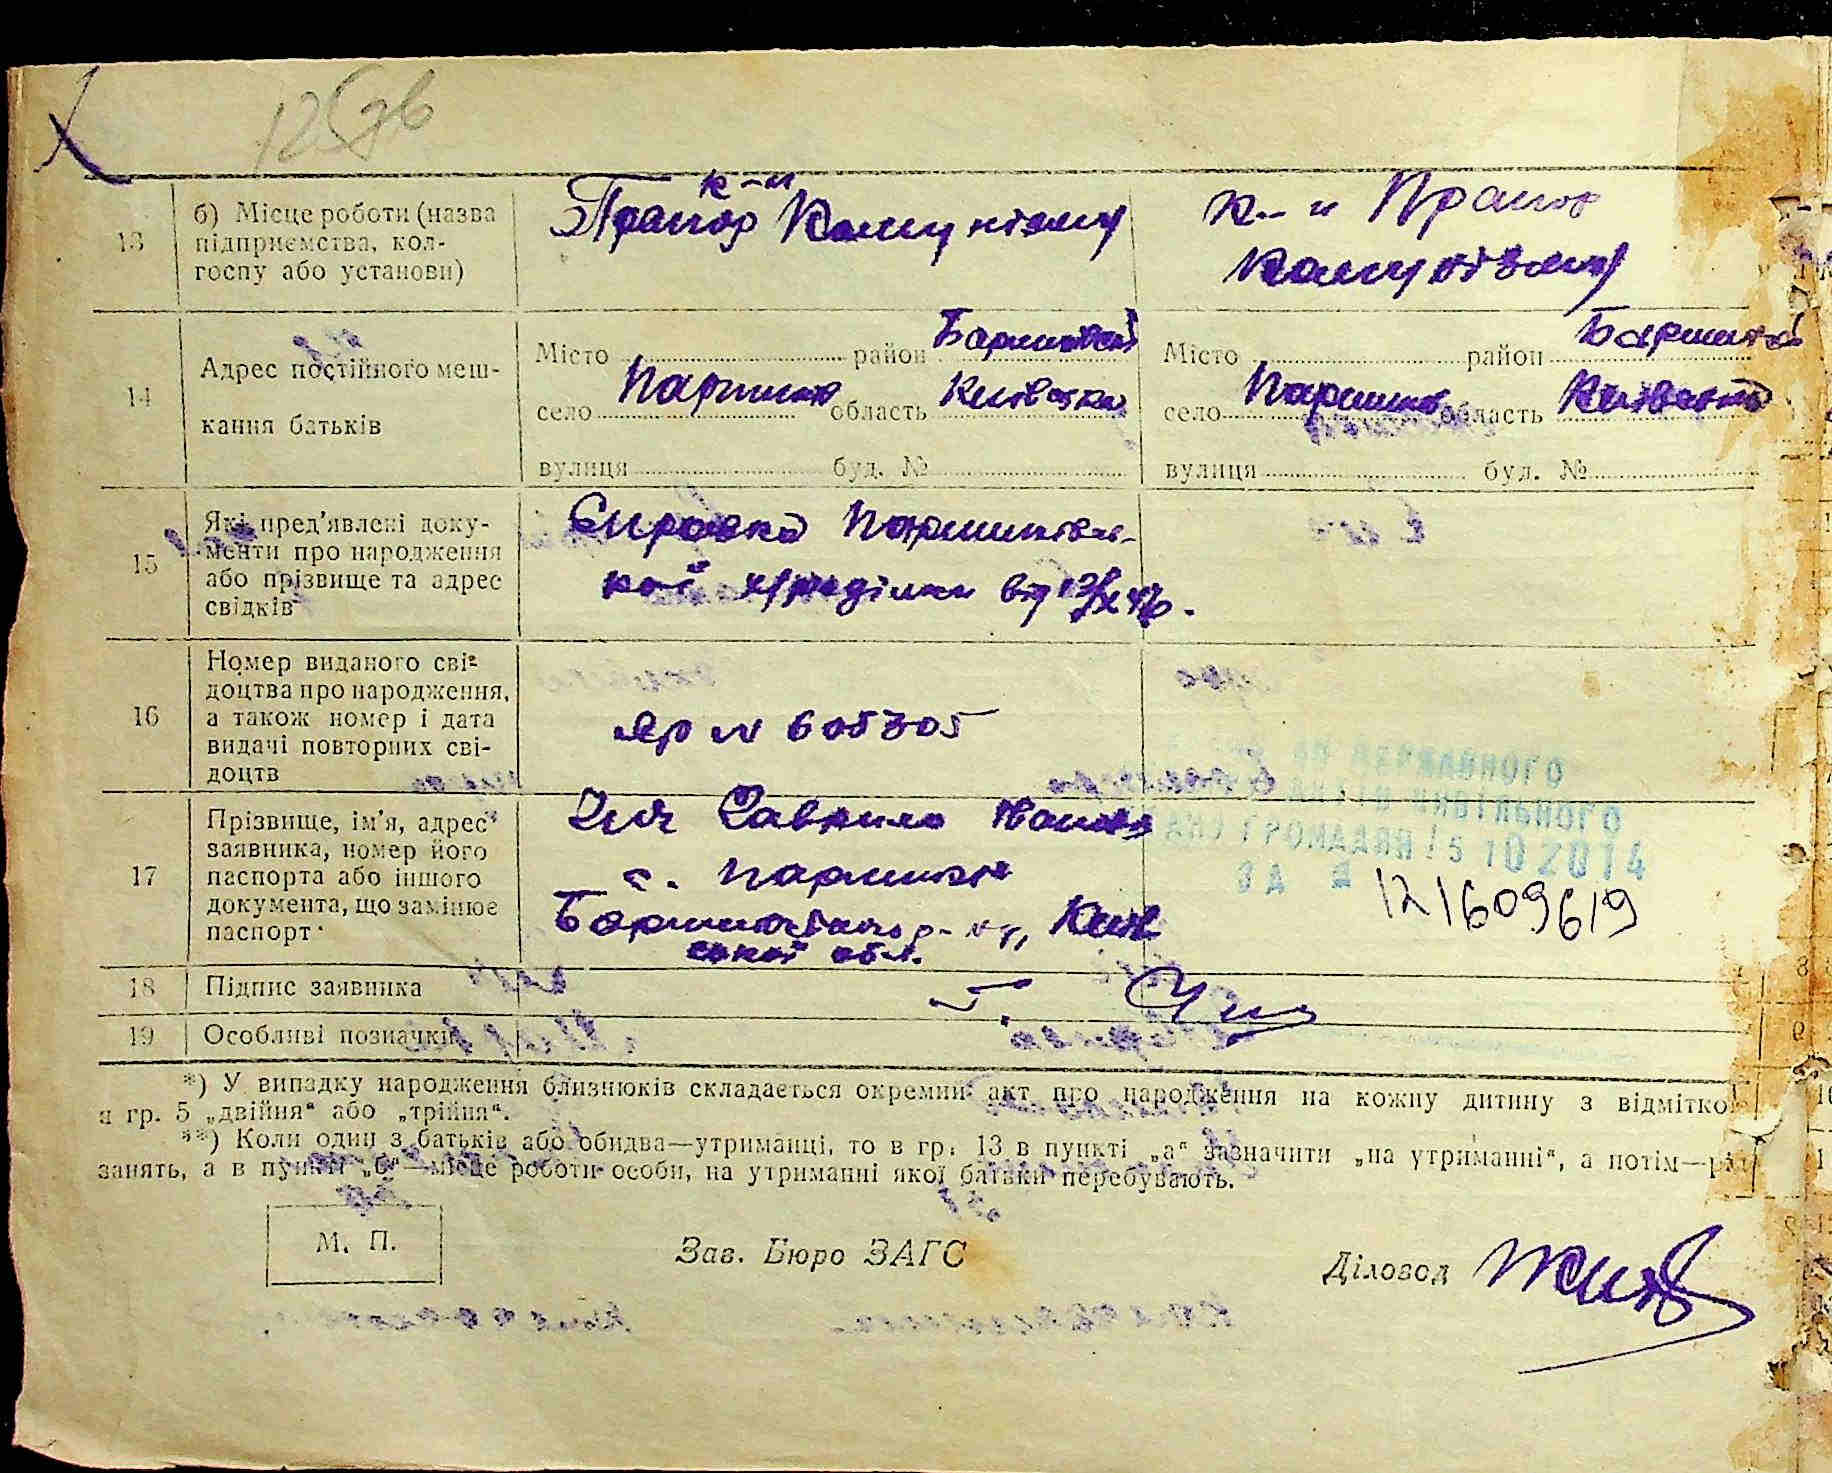 13 б) Місце роботи (назва підприємства, колгоспу або установи)
к-п
Прапор Комунізму
к-п Прапор
Комунізму
14 Адрес постійного мешкання батьків
Місто район Баришівський
село Паришків область Київська
вулиця буд. №
Місто район
село Паришків область Київська
вулиця буд. №
15 Які пред'явлені документи про народження або прізвище та адрес свідків
Справка Паришківсь-
кої від
16 Номер виданого свідоцтва про народження, а також номер і дата видачі повторних свідоцтв
ЯР № 605305
17 Прізвище, ім'я, адрес заявника, номер його паспорта або іншого документа, що замінює паспорт
Гаврило Іванов
с. Паришків
Баришівського р-ну, Київ
ської обл.
ДЕРЖАВНОГО
АКТІВ ЦИВІЛЬНОГО
ГРОМАДЯН 15 10 2014
121609619
18 Підпис заявника
19 Особливі позначки
*) У випадку народження близнюків складається окремий акт про народження на кожну дитину з відміткою
в гр. 5 „двійня“ або „трійня“.
**) Коли один з батьків або обидва—утриманці, то в гр. 13 в пункті „а“ зазначити „на утриманні“, а потім—рід
занять, а в пункті „б“—місце роботи особи, на утриманні якої батьки перебувають.
М. П.
Зав. Бюро ЗАГС
Діловод